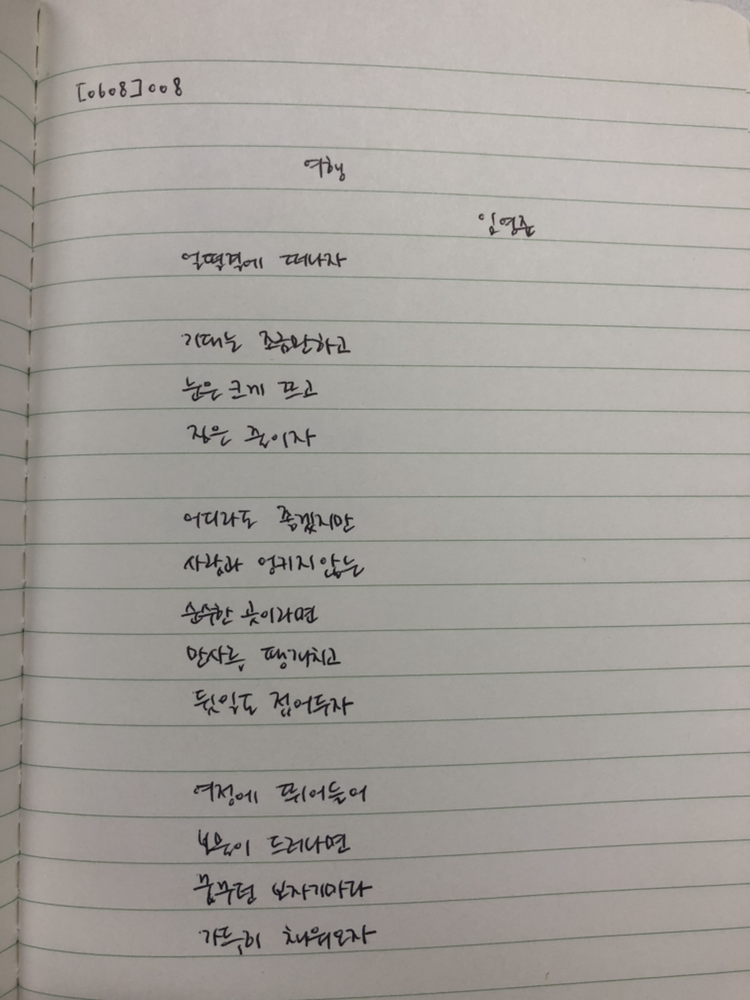 [0608]008
여행
임영준
얼떨결에 떠나자
기대는 조금만하고
눈은 크게 뜨고
짐은 줄이자
어디라도 좋겠지만
사람과 엉키지 않는
순수한 곳이라면
만사를 팽개치고
뒷일도 접어두자
여정에 뛰어들어
보물이 드러나면
꿈꾸던 보자기마다
가득히 채워오자